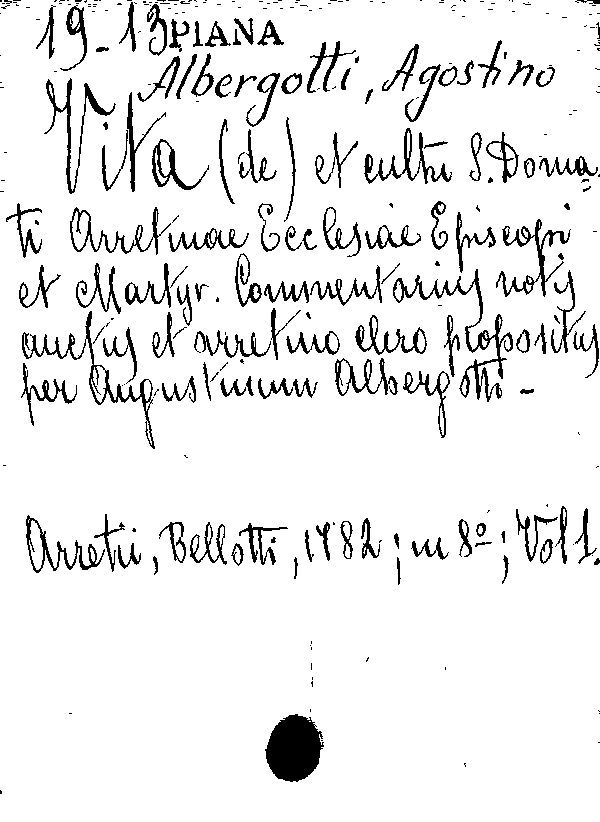 19-13 PIANA
Albergotti, Agostino
Vita (de) et cultu S. Dona=
ti Arretinae Ecclesiae Episcopi
et Martyr. Commentarius notis
auctus et arretino clero propositus
per Augustinum Albergotti -
Arretii, Bellotti, 1782; in 8º; Vol 1.